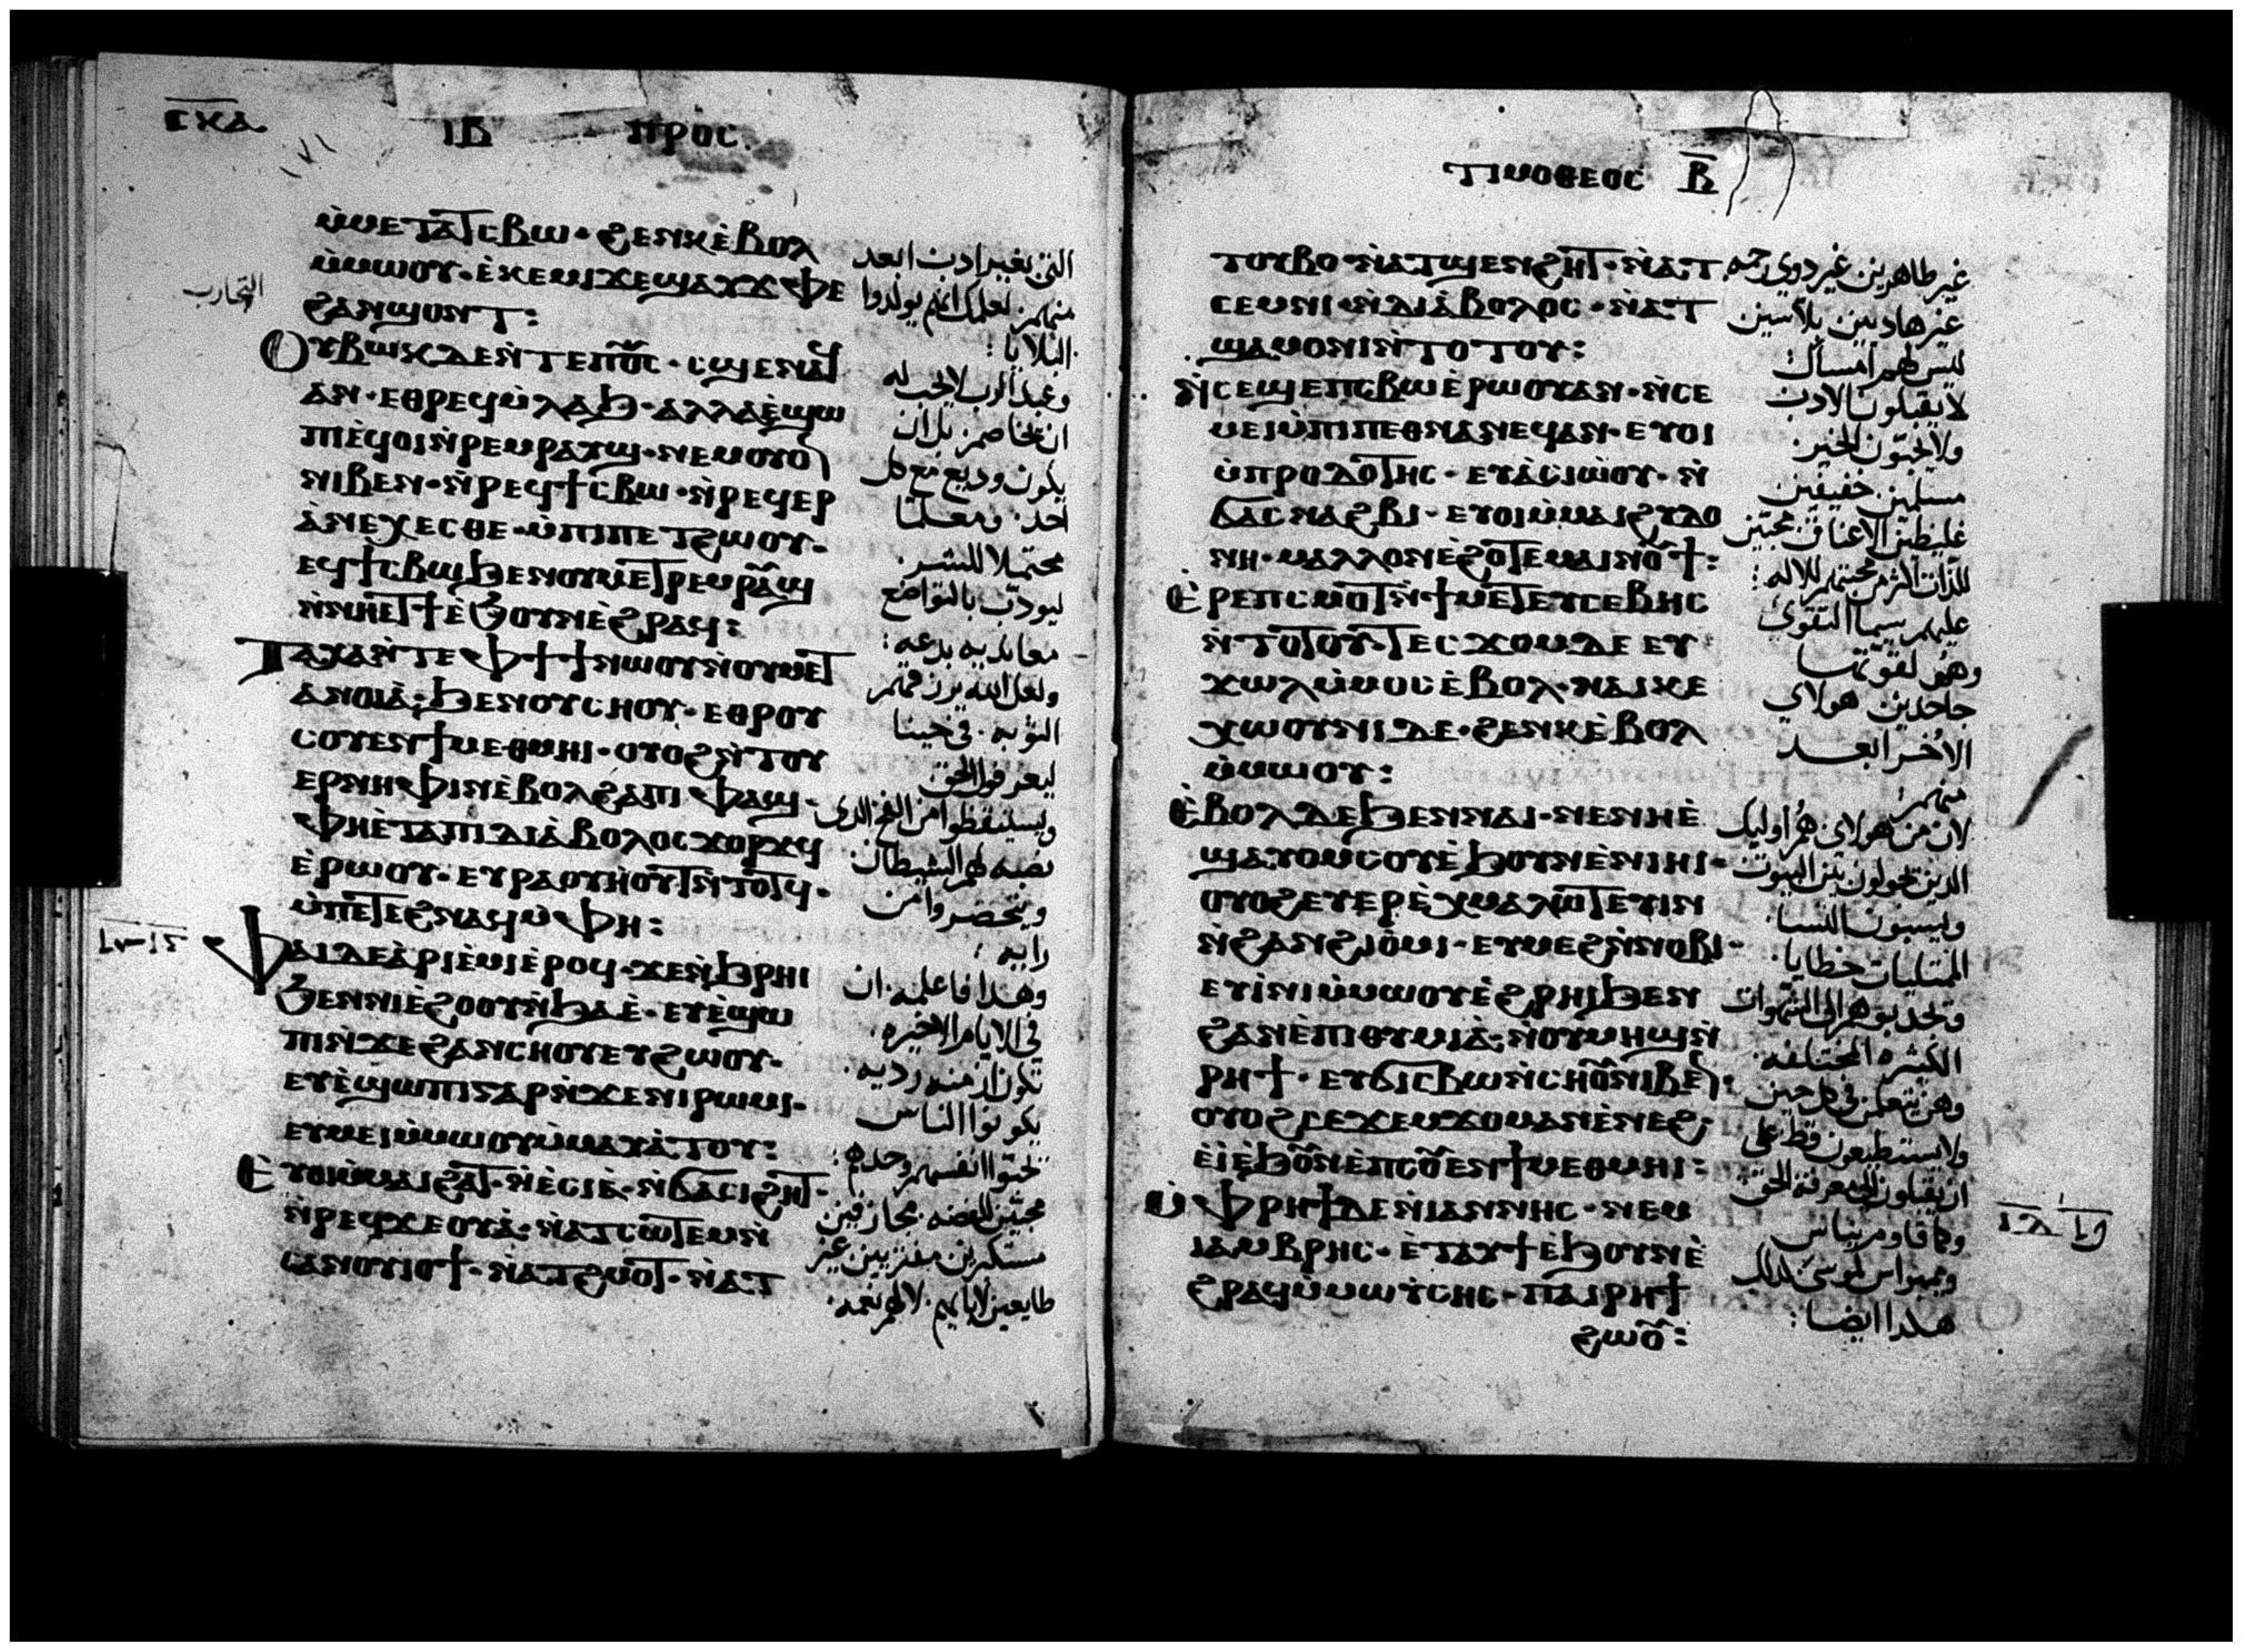 ⲥⲕⲁ
ⲓⲃ ⲡⲣⲟⲥ
ⲙ̀ⲙⲉⲧⲁⲧⲥⲃⲱ · ϩⲉⲛⲕ ⲉ̀ⲃⲟⲗ
ⲙ̀ⲙⲱⲟⲩ · ⲉⲕⲉⲙⲓ ϫⲉ ϣⲁⲩϫⲫⲉ
ϩⲁⲛϣⲟⲛⲧ :
ⲟⲩⲃⲱⲕ ⲇⲉ ⲛ̀ⲧⲉ ⲡ⳪ · ⲥϣⲉ ⲛⲁϥ
ⲁⲛ · ⲉⲑⲣⲉϥⲙ̀ⲗⲁϧ · ⲁⲗⲗⲁ ⲉ̀ϣⲱ
ⲡⲓ ⲉϥⲟⲓ ⲛ̀ⲣⲉⲙⲣⲁⲩϣ · ⲛⲉⲙ ⲟⲩⲟⲛ
ⲛⲓⲃⲉⲛ · ⲛ̀ⲣⲉϥϯⲥⲃⲱ · ⲛ̀ⲣⲉϥⲉⲣ
ⲁ̀ⲛⲉⲭⲉⲥⲑⲉ · ⲙ̀ⲡⲓⲡⲉⲧϩⲱⲟⲩ ·
ⲉϥϯⲥⲃⲱ ϧⲉⲛ ⲟⲩⲙⲉⲧⲣⲉⲙⲣⲁⲩϣ
ⲛ̀ⲛⲏⲉⲧϯ ⲉ̀ϧⲟⲩⲛ ⲉ̀ϩⲣⲁϥ :
ⲧⲁⲭⲁ ⲛ̀ⲧⲉ ⲫϯ ϯ ⲛⲱⲟⲩ ⲛ̀ⲟⲩⲙⲉⲧ
ⲁⲛⲟⲓⲁ̀ · ϧⲉⲛ ⲟⲩⲥⲏⲟⲩ · ⲉⲑⲣⲟⲩ
ⲥⲟⲩⲉⲛ ϯⲙⲉⲑⲙⲏⲓ · ⲟⲩⲟϩ ⲛ̀ⲧⲟⲩ
ⲉⲣⲛⲏⲫⲓⲛ ⲉ̀ⲃⲟⲗ ϩⲁ ⲡⲓⲫⲁϣ ·
ⲫⲏⲉ̀ⲧⲁ ⲡⲓⲇⲓⲁ̀ⲃⲟⲗⲟⲥ ϫⲟⲣϫϥ
ⲉ̀ⲣⲱⲟⲩ · ⲉⲩⲣⲁⲟⲩⲏⲟⲩⲧ ⲛ̀ⲧⲟⲧϥ ·
ⲙ̀ⲡⲉⲧⲉϩⲛⲁϥ ⲙ̀ⲫⲏ :
ⲫⲁⲓ ⲇⲉ ⲁ̀ⲣⲓⲉ̀ⲙⲓ ⲉ̀ⲣⲟϥ · ϫⲉ ⲛ̀ϧⲣⲏⲓ
ϧⲉⲛ ⲛⲓⲉ̀ϩⲟⲟⲩ ⲛ̀ϧⲁⲉ̀ · ⲉⲩⲉ̀ϣⲱ
ⲡⲓ ⲛ̀ϫⲉ ϩⲁⲛⲥⲏⲟⲩ ⲉⲩϩⲱⲟⲩ ·
ⲉⲩⲉ̀ϣⲱⲡⲓ ⲅⲁⲣ ⲛ̀ϫⲉ ⲛⲓⲣⲱⲙⲓ ·
ⲉⲩⲙⲉⲓ ⲙ̀ⲙⲱⲟⲩ ⲙ̀ⲙⲁⲩⲁ̀ⲧⲟⲩ :
ⲉⲩⲟⲓ ⲙ̀ⲙⲁⲓϩⲁⲧ · ⲛ̀ⲉ̀ⲥⲓⲉ̀ · ⲛ̀ϭⲁⲥⲓϩⲏⲧ ·
ⲛ̀ⲣⲉϥϫⲉⲟⲩⲁ̀ · ⲛ̀ⲁⲧⲥⲱⲧⲉⲙ ⲛ̀
ⲥⲁ ⲛⲟⲩⲓⲟϯ · ⲛ̀ⲁⲧϩⲙⲟⲧ · ⲛ̀ⲁⲧ
التجارب
التي بغير ادب ابعد
منهم لعلمك انهم يولدوا
البلايا :
وعبد الرب لا يجب له
ان يخاصم بل ان
يكون وديع مع كل
احد · ومعلما
محتملا للشر ·
ليودب بالتواضع
معانديه بدعه :
ولعل الله يرزقهم
التوبه · في حينا
ليعرفوا الحق ·
ويستيقظوا من الفخ الذي
نصبه لهم الشيطان
رايه :
وهذا فاعلمه · ان
في الايام الاخيره ·
تكون ازمنه رديه ·
يكونوا الناس
محبين للفضه · مجازفين
طايعين لابايهم · لا لهم نعمه ·
ⲧⲓⲙⲟⲑⲉⲟⲥ ⲃ̅
ⲧⲟⲩⲃⲟ · ⲛ̀ⲁⲧϣⲉⲛϩⲏⲧ · ⲛ̀ⲁⲧ
ⲥⲉⲙⲛⲓ · ⲛ̀ⲇⲓⲁ̀ⲃⲟⲗⲟⲥ · ⲛ̀ⲁⲧ
ϣⲁⲙⲟⲛⲓ ⲛ̀ⲧⲟⲧⲟⲩ :
ⲛ̀ⲥⲉϣⲉⲡⲥⲃⲱ ⲉ̀ⲣⲱⲟⲩ ⲁⲛ · ⲛ̀ⲥⲉ
ⲙⲉⲓ ⲙ̀ⲡⲓⲡⲉⲑⲛⲁⲛⲉϥ ⲁⲛ · ⲉⲩⲟⲓ
ⲙ̀ⲡⲣⲟⲇⲟⲧⲏⲥ · ⲉⲩⲁ̀ⲥⲓⲱ̀ⲟⲩ · ⲛ̀
ϭⲁⲥⲛⲁϩⲃⲓ · ⲉⲩⲟⲓ ⲙ̀ⲙⲁⲓϩⲩⲇⲟ
ⲛⲏ · ⲙⲁⲗⲗⲟⲛ ⲉ̀ϩⲟⲧⲉ ⲙⲁⲓⲛⲟⲩϯ :
ⲉ̀ⲣⲉ ⲡⲥⲙⲟⲧ ⲛ̀ϯⲙⲉⲧⲉⲩⲥⲉⲃⲏⲥ
ⲛ̀ⲧⲟⲧⲟⲩ · ⲧⲉⲥϫⲟⲙ ⲇⲉ ⲉⲩ
ϫⲱⲗ ⲙ̀ⲙⲟⲥ ⲉ̀ⲃⲟⲗ · ⲛⲁⲓⲕⲉ
ⲭⲱⲟⲩⲛⲓ ⲇⲉ · ϩⲉⲛⲕ ⲉ̀ⲃⲟⲗ
ⲙ̀ⲙⲱⲟⲩ :
ⲉ̀ⲃⲟⲗ ⲇⲉ ϧⲉⲛ ⲛⲁⲓ · ⲛⲉ ⲛⲏⲉ̀
ϣⲁⲩⲟⲩⲥⲟⲩ ⲉ̀ϧⲟⲩⲛ ⲉ̀ⲛⲓⲏⲓ ·
ⲟⲩⲟϩ ⲉⲩⲉⲣⲉ̀ⲭⲙⲁⲗⲱⲧⲉⲩⲓⲛ
ⲛ̀ϩⲁⲛϩⲓⲟ̀ⲙⲓ · ⲉⲩⲙⲉϩ ⲛ̀ⲛⲟⲃⲓ ·
ⲉⲩⲓ̀ⲛⲓ ⲙ̀ⲙⲱⲟⲩ ⲉ̀ϩⲣⲏⲓ ϧⲉⲛ
ϩⲁⲛⲉ̀ⲡⲓⲑⲩⲙⲓⲁ̀ · ⲛ̀ⲟⲩⲙⲏϣ ⲛ̀
ⲣⲏϯ · ⲉⲩϭⲓⲥⲃⲱ ⲛ̀ⲥⲏⲟⲩ ⲛⲓⲃⲉⲛ ·
ⲟⲩⲟϩ ⲥⲉϫⲉⲙϫⲟⲙ ⲁⲛ ⲉ̀ⲛⲉϩ ·
ⲉ̀ⲓ̀ ⲉ̀ϧⲟⲩⲛ ⲉ̀ⲡⲥⲟⲩⲉⲛ ϯⲙⲉⲑⲙⲏⲓ :
ⲙ̀ⲫⲣⲏϯ ⲇⲉ ⲛ̀ⲓⲁⲛⲛⲏⲥ · ⲛⲉⲙ
ⲓⲁⲙⲃⲣⲏⲥ · ⲉ̀ⲧⲁⲩϯ ⲉ̀ϧⲟⲩⲛ ⲉ̀
ϩⲣⲁϥ ⲙ̀ⲙⲱⲩ̀ⲥⲏⲥ · ⲡⲁⲓⲣⲏϯ
ϩⲱⲟⲩ :
غير طاهرين غير دوي رحمه
غير هاديين بلاسين
ليس لهم امساك
لا يقبلون الادب
ولا يحبون الخير
مسلمين خفيفين
غليظين الاعناق محبين
للذات اكثر من محبتهم للاله :
عليهم سيما التقوي
وهم لقوتها
جاحدين هولاي
الاخر ابعد
منهم :
لان من هولاي هم اوليك
الذين يجولون بين البيوت
ويسبون النسا
الممتليات خطايا ·
الكثيره المختلفه ·
وهن يتعلمن في كل حين
ولا يستطيعون قط علي
ان يقبلون الي معرفة الحق
ويمبراس لموسي كذلك
هكذا ايضا :